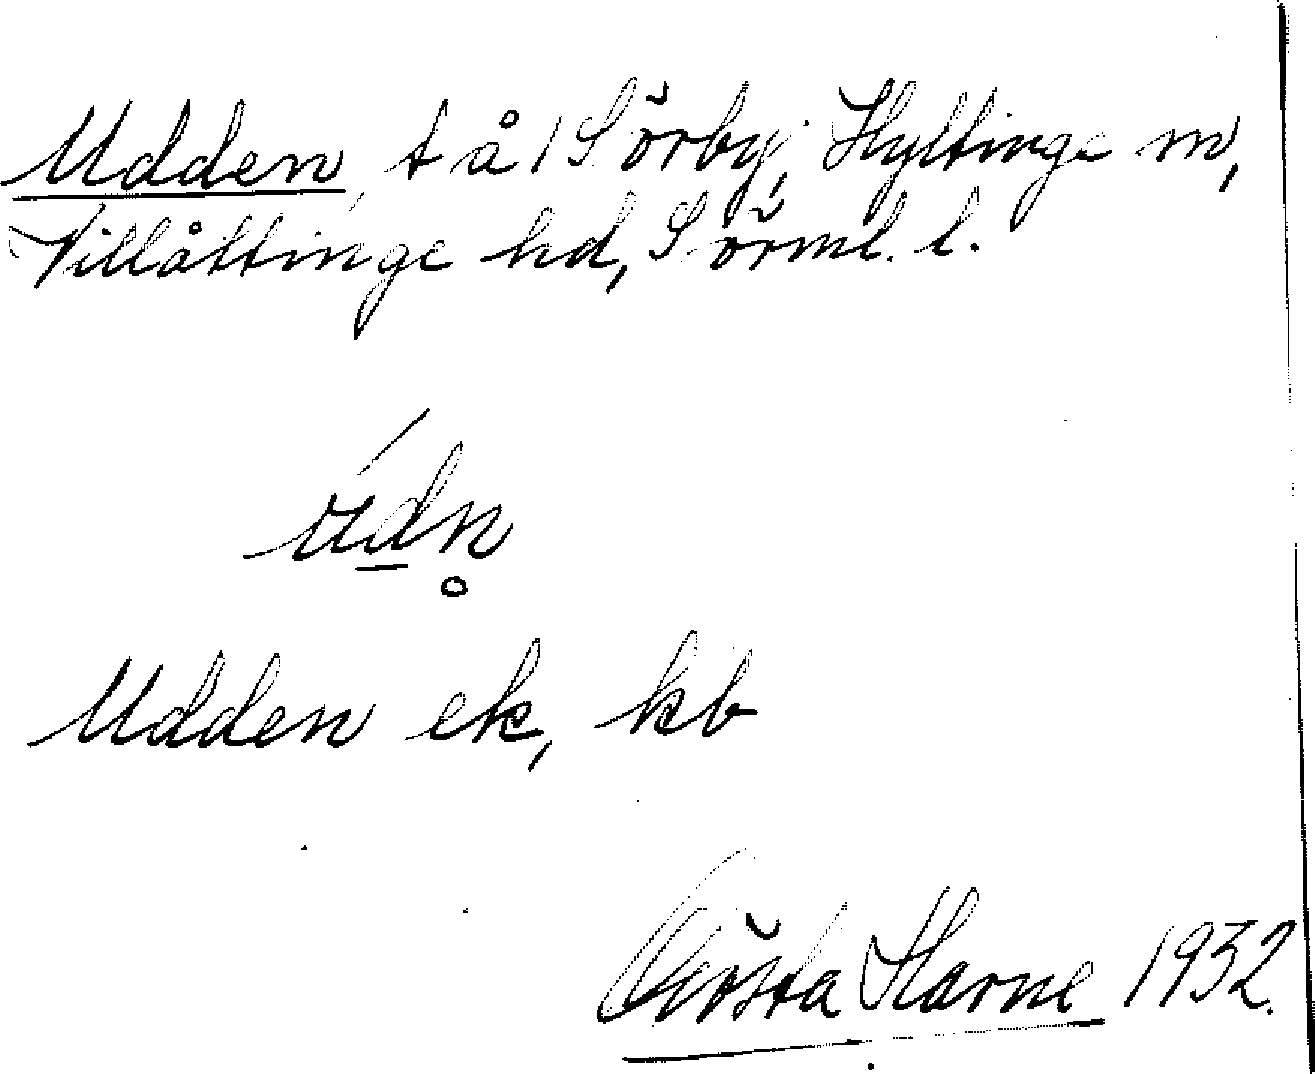 Udden, t å 1 Sörby, Hyltinge sn,
Villåttinge hd, Sörml. l.
údn̥
Udden ek, kb
Gösta Harne 1932.